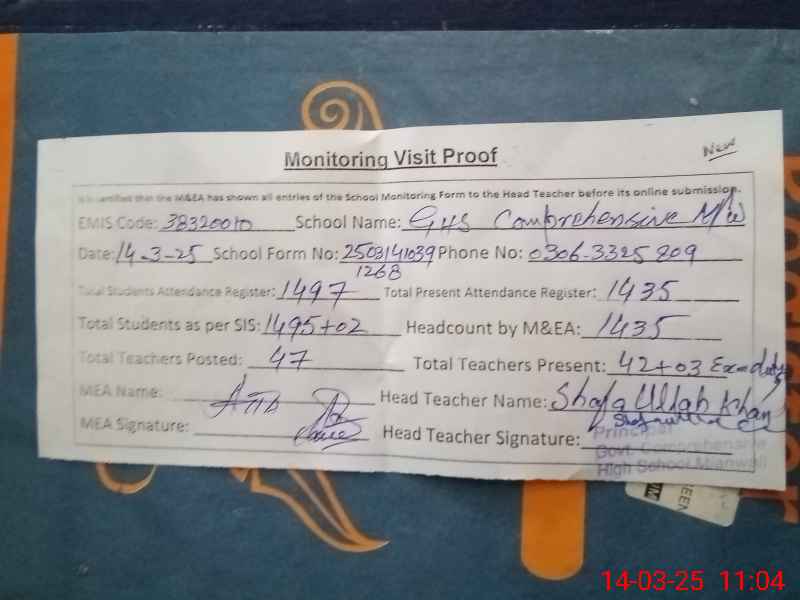 New
Monitoring Visit Proof
It is certified that the M&EA has shown all entries of the School Monitoring Form to the Head Teacher before its online submission.
EMIS Code: 38320010 School Name: GHS Comprehensive M/w
Date: 14-3-25 School Form No: 2503141039 Phone No: 0306-3325809
1268
Total Students Attendance Register: 1497 Total Present Attendance Register: 1435
Total Students as per SIS: 1495+02 Headcount by M&EA: 1435
Total Teachers Posted: 47 Total Teachers Present: 42+03 Exam duty
MEA Name: Head Teacher Name: Shafa Ullah Khan
MEA Signature: Head Teacher Signature:
Principal
Govt. Comprehensive
High School Mianwali
14-03-25 11:04